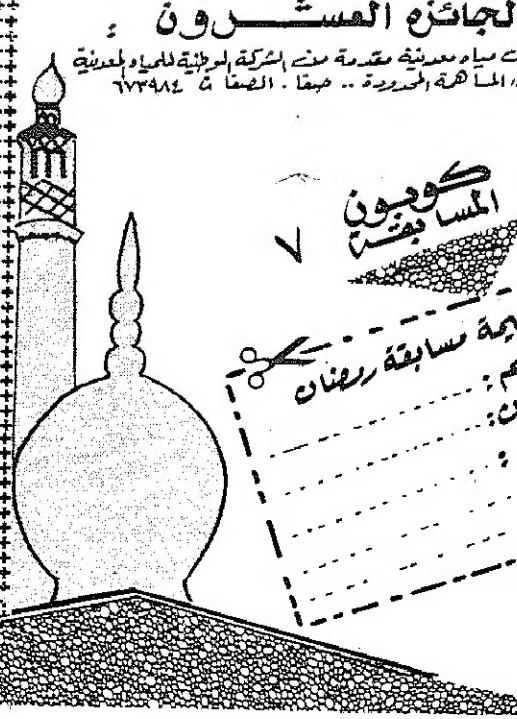 لجائزة العشرون :
مياه معدنية مقدمة من الشركة الوطنية للمياه المعدنية
المساهمة المحدودة .. صبغا . الصفا ت ٦٧٣٩٨٤
كوبون
المسابقة
٧
يمة مسابقة رمضان
م :
ن :
: